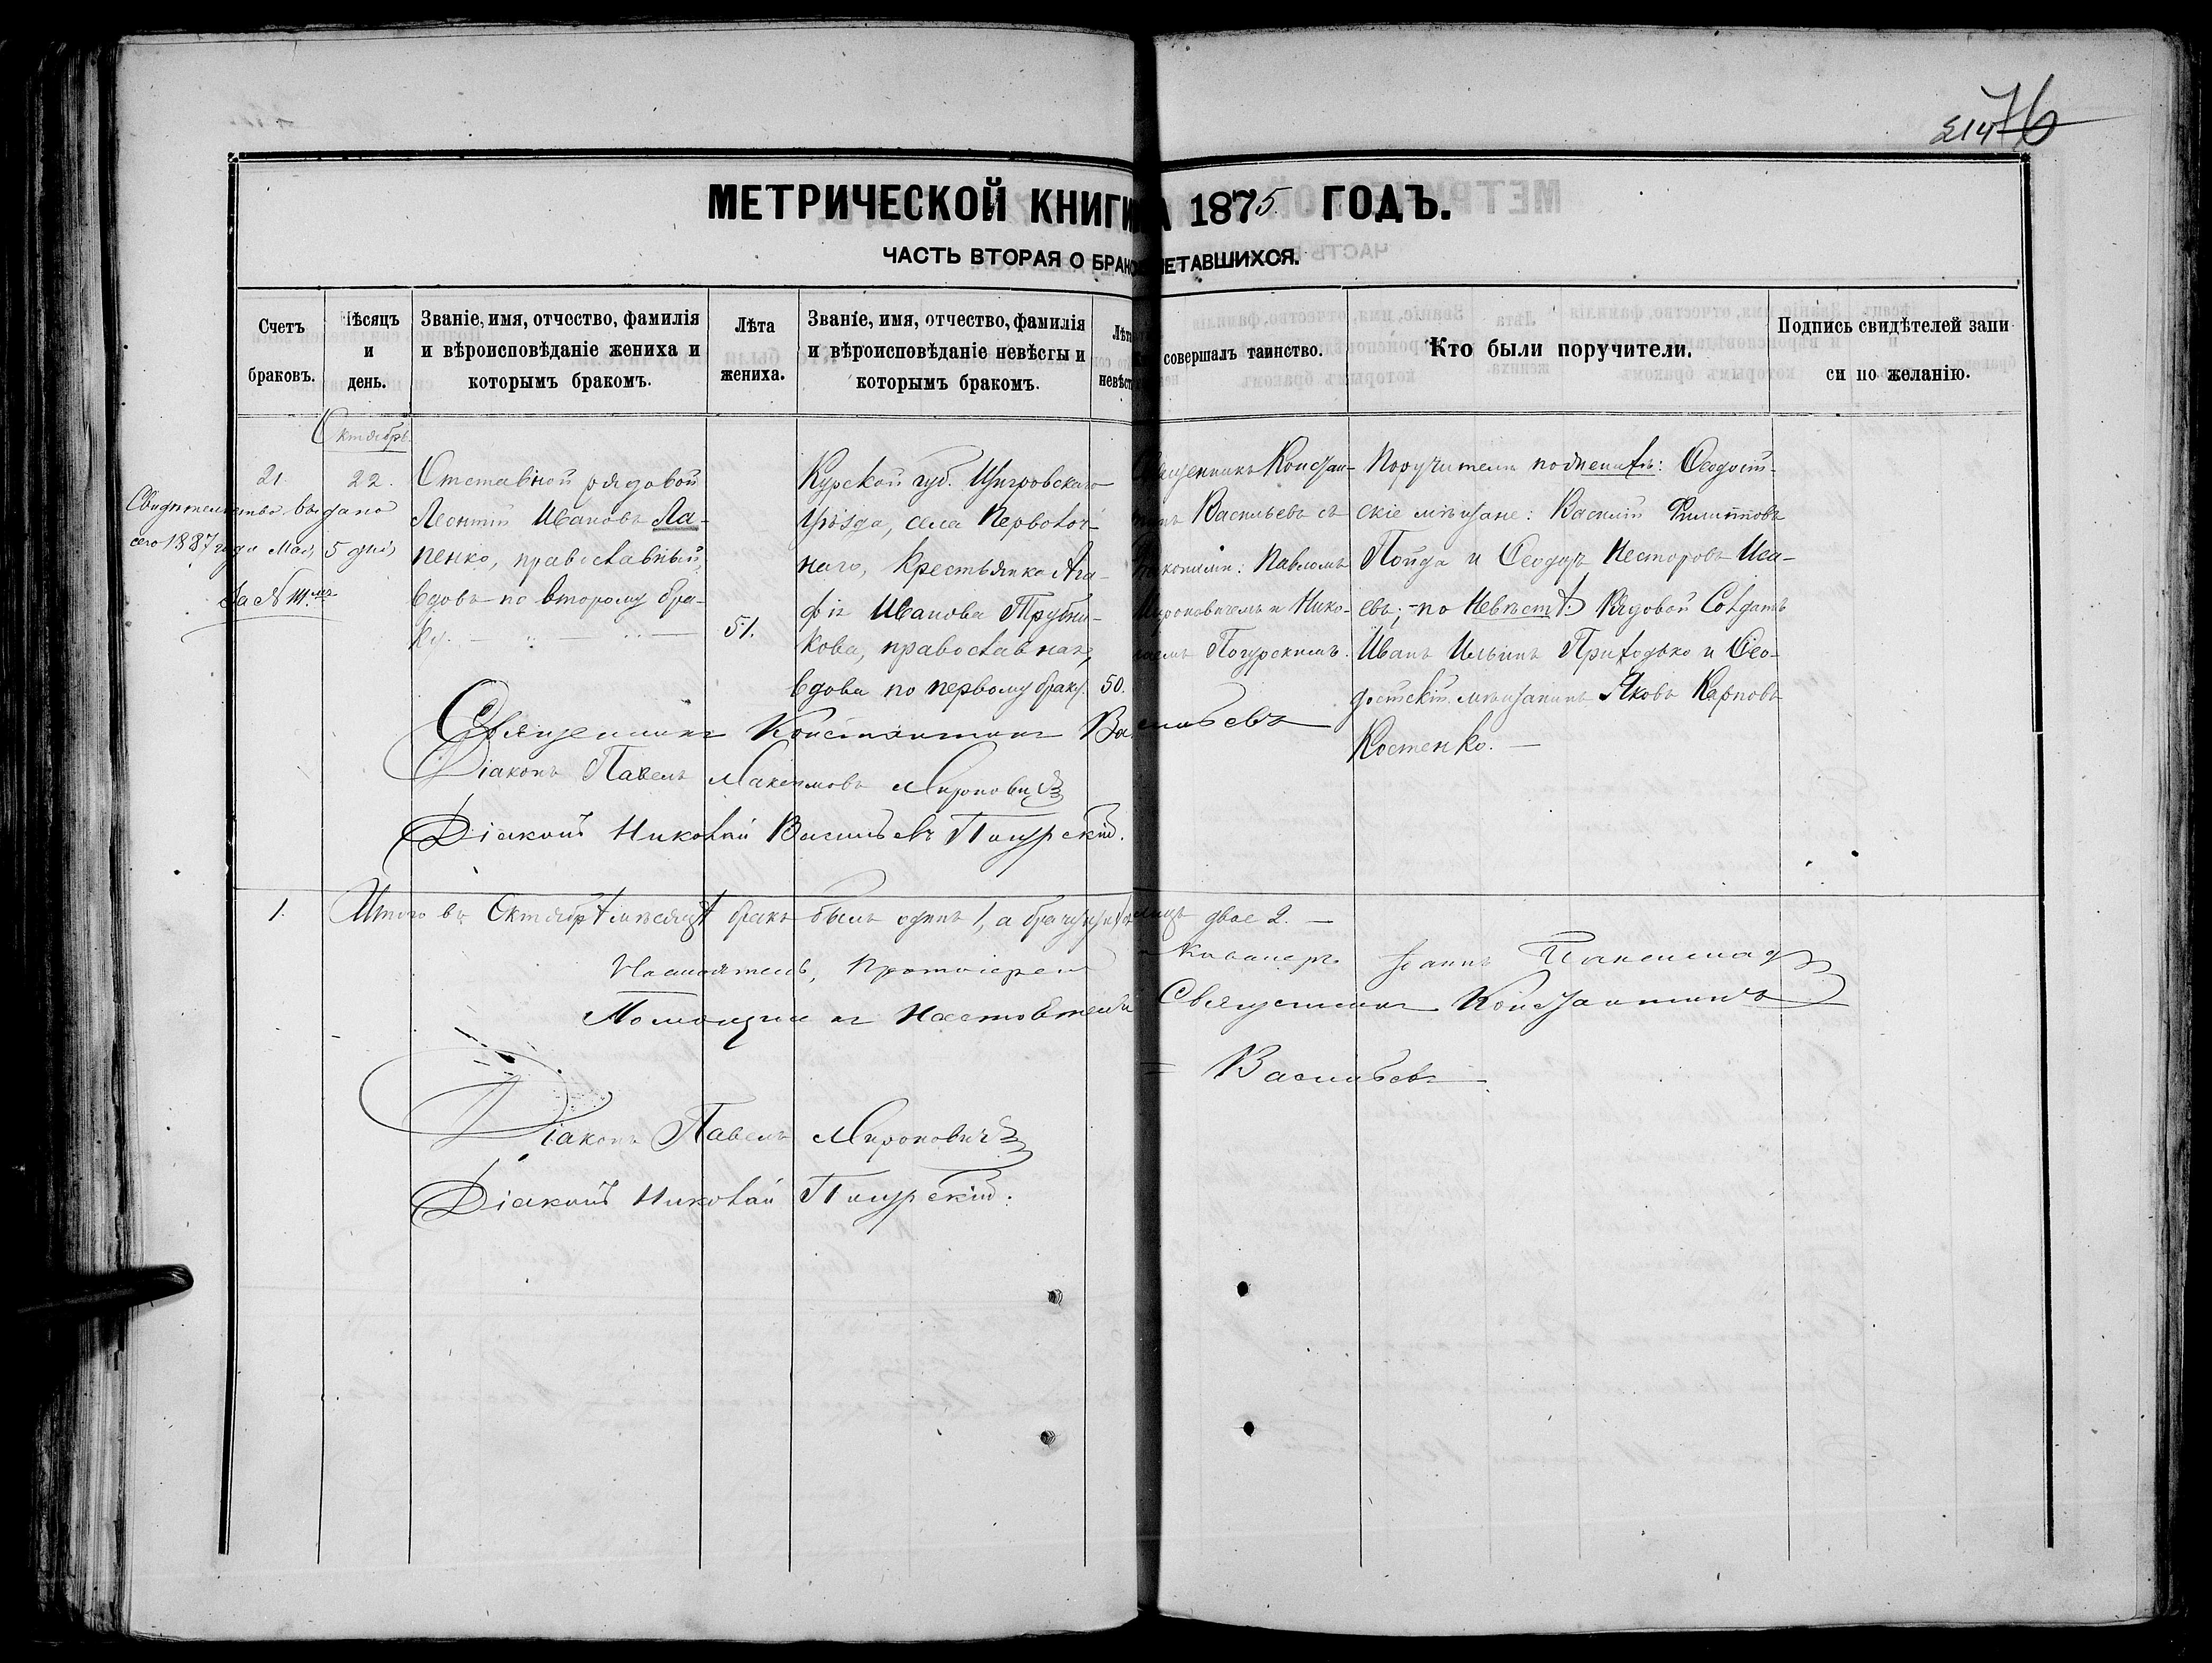 214 76
МЕТРИЧЕСКОЙ КНИГИ НА 1875 ГОДЪ.
ЧАСТЬ ВТОРАЯ О БРАКОСОЧЕТАВШИХСЯ.
Счетъ браковъ.
Мѣсяцъ и день.
Званіе, имя, отчество, фамилія
и вѣроисповѣданіе жениха и
которымъ бракомъ.
Лѣта
жениха.
Званіе, имя, отчество, фамилія
и вѣроисповѣданіе невѣсты и
которымъ бракомъ.
Лѣта
невѣст
совершалъ таинство.
Кто были поручители.
Подпись свидѣтелей запи
си по желанію.
Октябрь.
21.
22.
Свидѣтельство выдано
сего 1887 года Мая 5 дня
За №
Отставной рядовой
Леонтій Ивановъ Ла-
пенко, православный,
вдовъ по второму бра-
ку.
51.
Курской губ. Щигровскаго
Уѣзда, села Первоточ-
наго, Крестьянка Ага-
фія Иванова Трубни-
кова, православная,
вдова по первому браку.
50.
Священникъ Констан-
тинъ Васильевъ съ
Діаконами: Павломъ
Мироновичемъ и Нико-
лаемъ Погурскимъ.
Поручители по женихѣ: Ѳеодосій-
скіе мѣщане: Василій Филипповъ
Пойда и Ѳеодоръ Несторовъ Иса-
евъ; по невѣстѣ: Рядовой Солдатъ
Иванъ Ильинъ Приходько и Ѳео-
досійскій мѣщанинъ Яковъ Карповъ
Костенко.
Священникъ Константинъ Васильевъ
Діаконъ Павелъ Максимовъ Мироновичъ
Діаконъ Николай Васильевъ Погурскій.
1.
Итого въ Октябрѣ мѣсяцѣ бракъ былъ одинъ 1, а брачущихся лицъ двое 2.
Настоятель, Протоіерей Кавалеръ Іоаннъ
Помощникъ Настоятеля Священникъ Константинъ
Васильевъ
Діаконъ Павелъ Мироновичъ
Діаконъ Николай Погурскій.